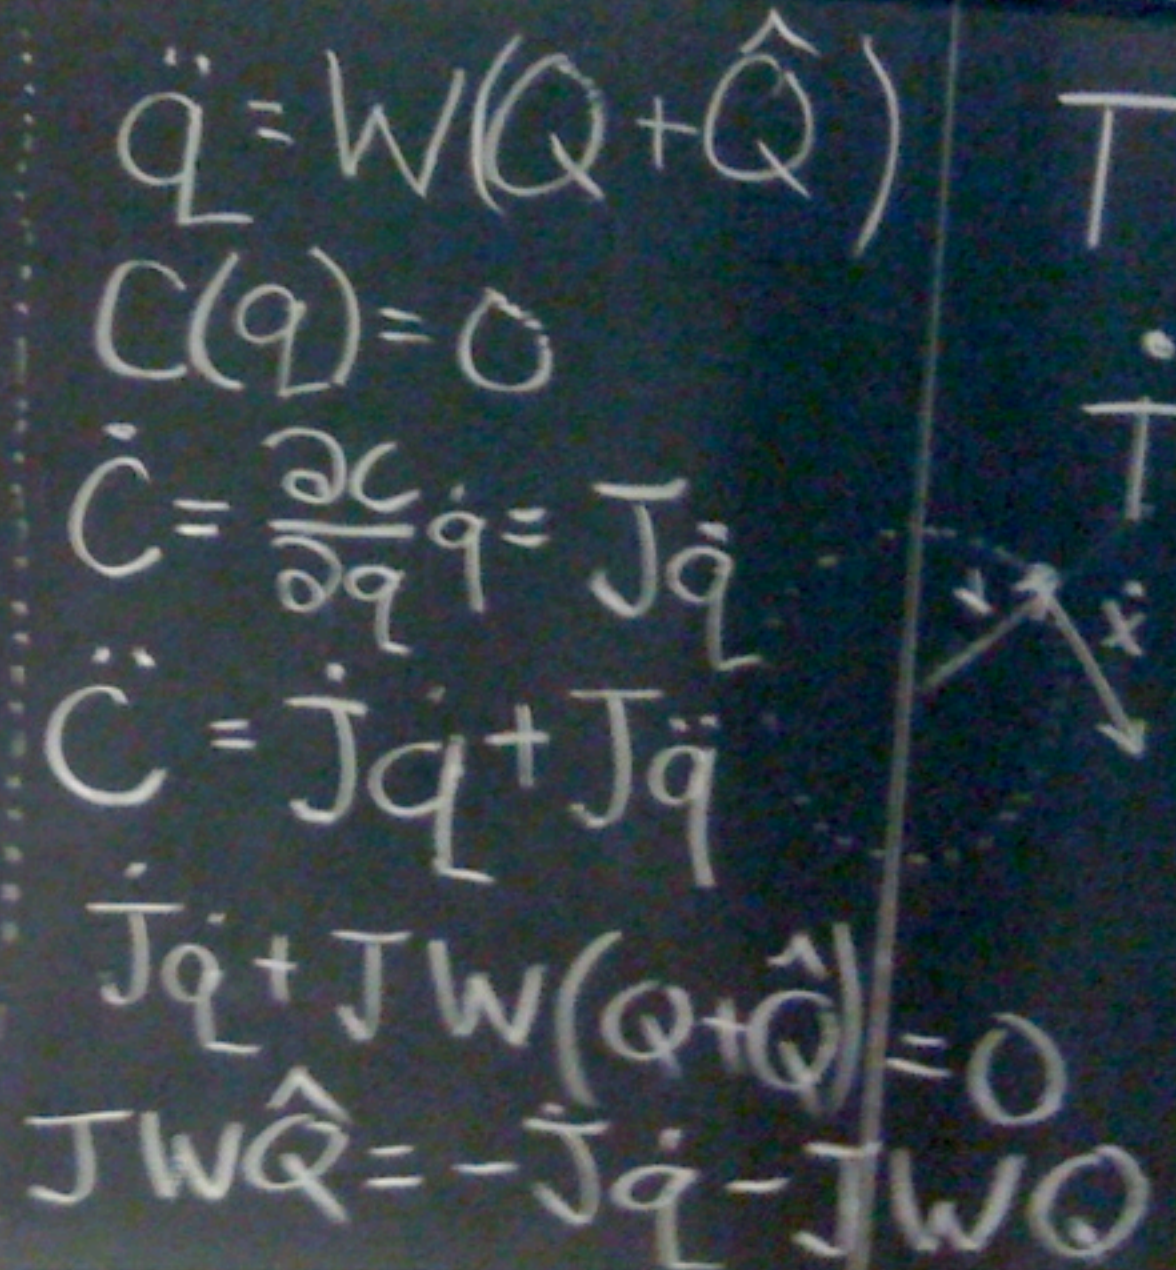 q̈ = W(Q + Q̂)
C(q) = 0
Ċ = ∂C/∂q q̇ = Jq̇
C̈ = J̇q̇ + Jq̈
J̇q̇ + JW(Q + Q̂) = 0
JWQ̂ = -J̇q̇ - JWQ
T
Ṫ
ẋ